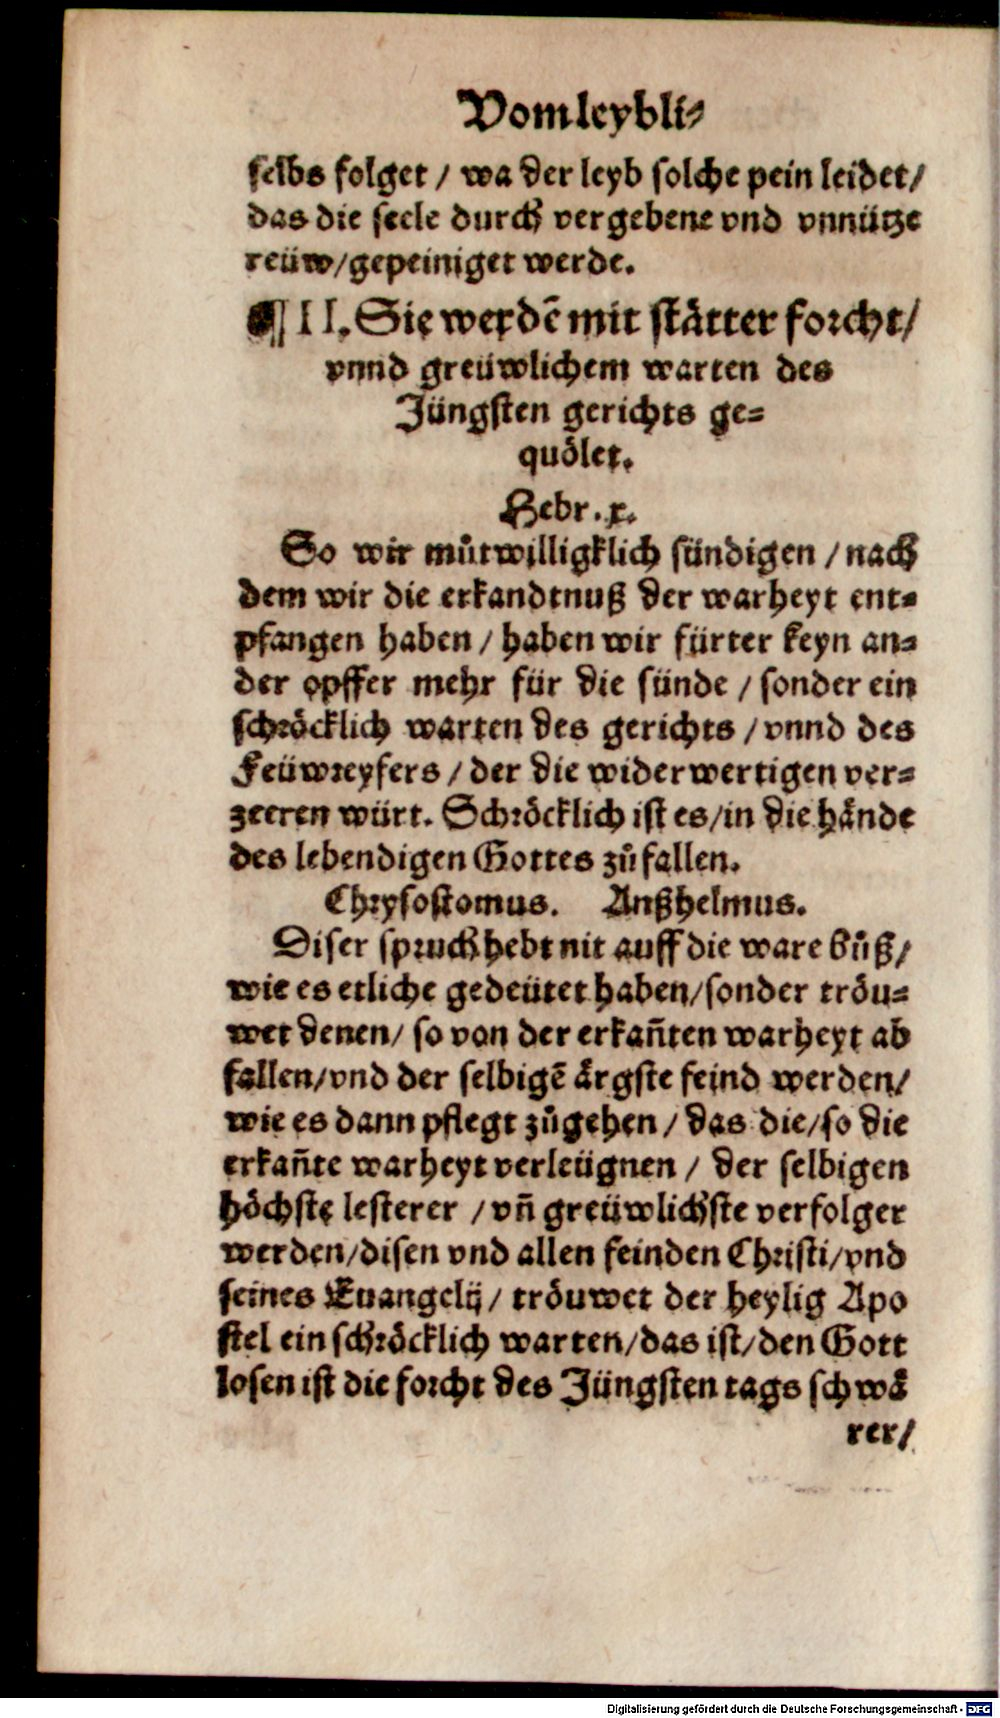 Vom leybli⸗
selbs folget / wa der leyb solche pein leidet /
das die seele durch vergebene vnd vnnütze
reüw / gepeiniget werde.
¶ II. Sie werdē mit stätter forcht /
vnnd greüwlichem warten des
Jüngsten gerichts ge⸗
quölet.
Hebr. x.
So wir můtwilligklich sündigen / nach
dem wir die erkandtnuß der warheyt ent⸗
pfangen haben / haben wir fürter keyn an⸗
der opffer mehr für die sünde / sonder ein
schröcklich warten des gerichts / vnnd des
Feüwreyfers / der die widerwertigen ver⸗
zeeren würt. Schröcklich ist es / in die hände
des lebendigen Gottes zů fallen.
Chrysostomus. Anßhelmus.
Diser spruch hebt nit auff die ware bůß /
wie es etliche gedeütet haben / sonder tröu⸗
wet denen / so von der erkañten warheyt ab
fallen / vnd der selbigē ärgste feind werden /
wie es dann pflegt zůgehen / das die / so die
erkañte warheyt verleügnen / der selbigen
höchste lesterer / vñ greüwlichste verfolger
werden / disen vnd allen feinden Christi / vnd
seines Euangelij / tröuwet der heylig Apo
stel ein schröcklich warten / das ist / den Gott
losen ist die forcht des Jüngsten tags schwä
rer /
Digitalisierung gefördert durch die Deutsche Forschungsgemeinschaft - DFG